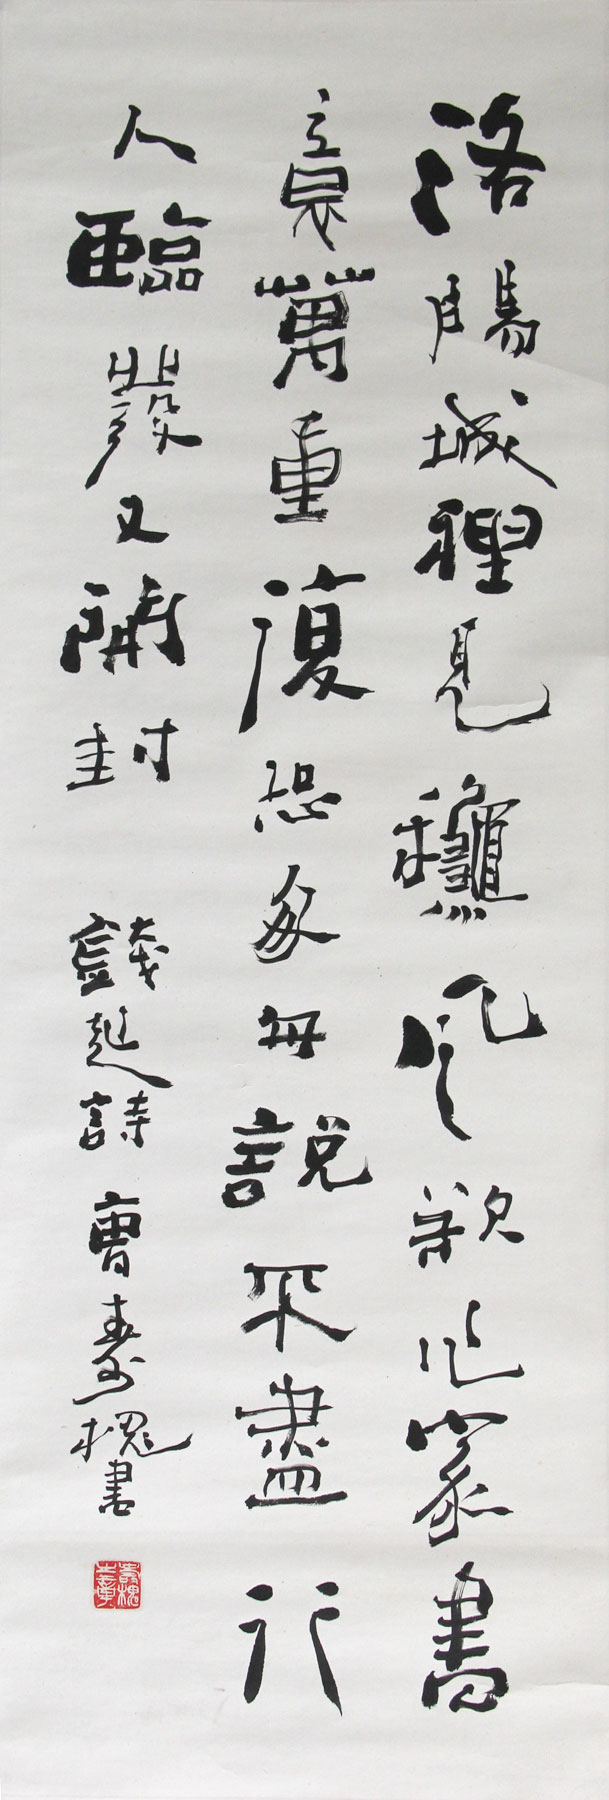 洛陽城裡見龝風欲作家書
意萬重復恐匆匆說不盡行
人臨發又開封 錢起詩 曹壽槐書
壽槐之章